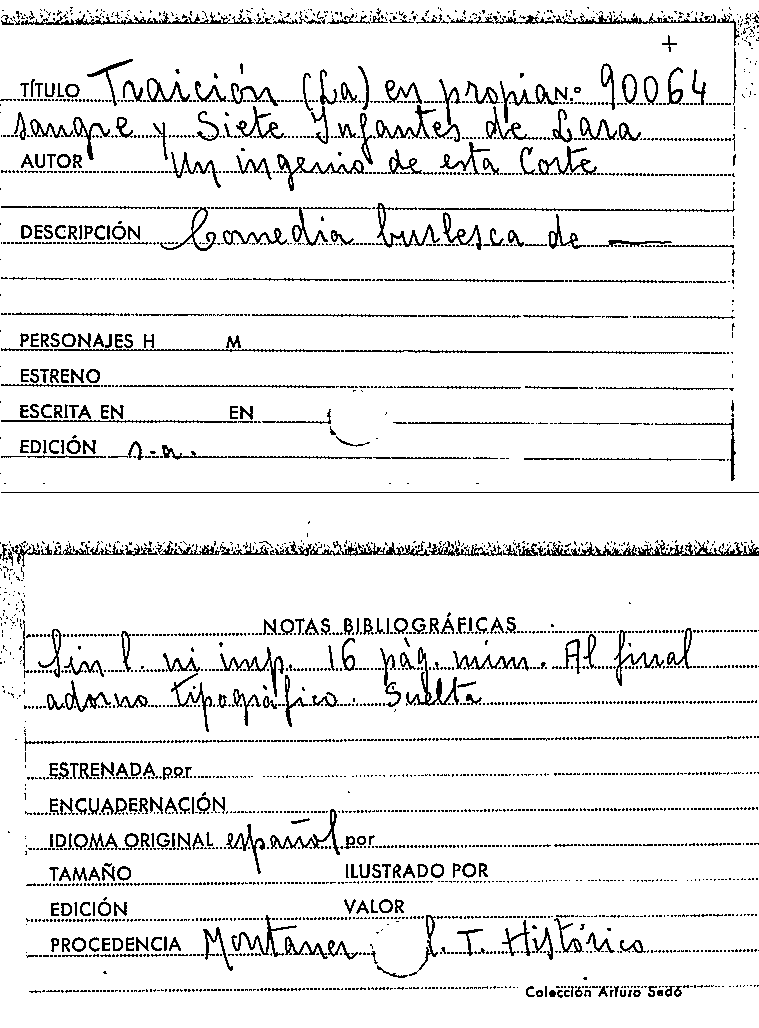 +
TÍTULO Traición (La) en propia N.º 90064
sangre y Siete Infantes de Lara
AUTOR Un ingenio de esta Corte
DESCRIPCIÓN Comedia burlesca de —
PERSONAJES H M
ESTRENO
ESCRITA EN EN
EDICIÓN s.a.
NOTAS BIBLIOGRÁFICAS
Sin l. ni imp. 16 pág. núm. Al final
adorno tipográfico. Suelta
ESTRENADA por
ENCUADERNACIÓN
IDIOMA ORIGINAL español por
TAMAÑO ILUSTRADO POR
EDICIÓN VALOR
PROCEDENCIA Montaner l. T. Histórico
Colección Arturo Sedó